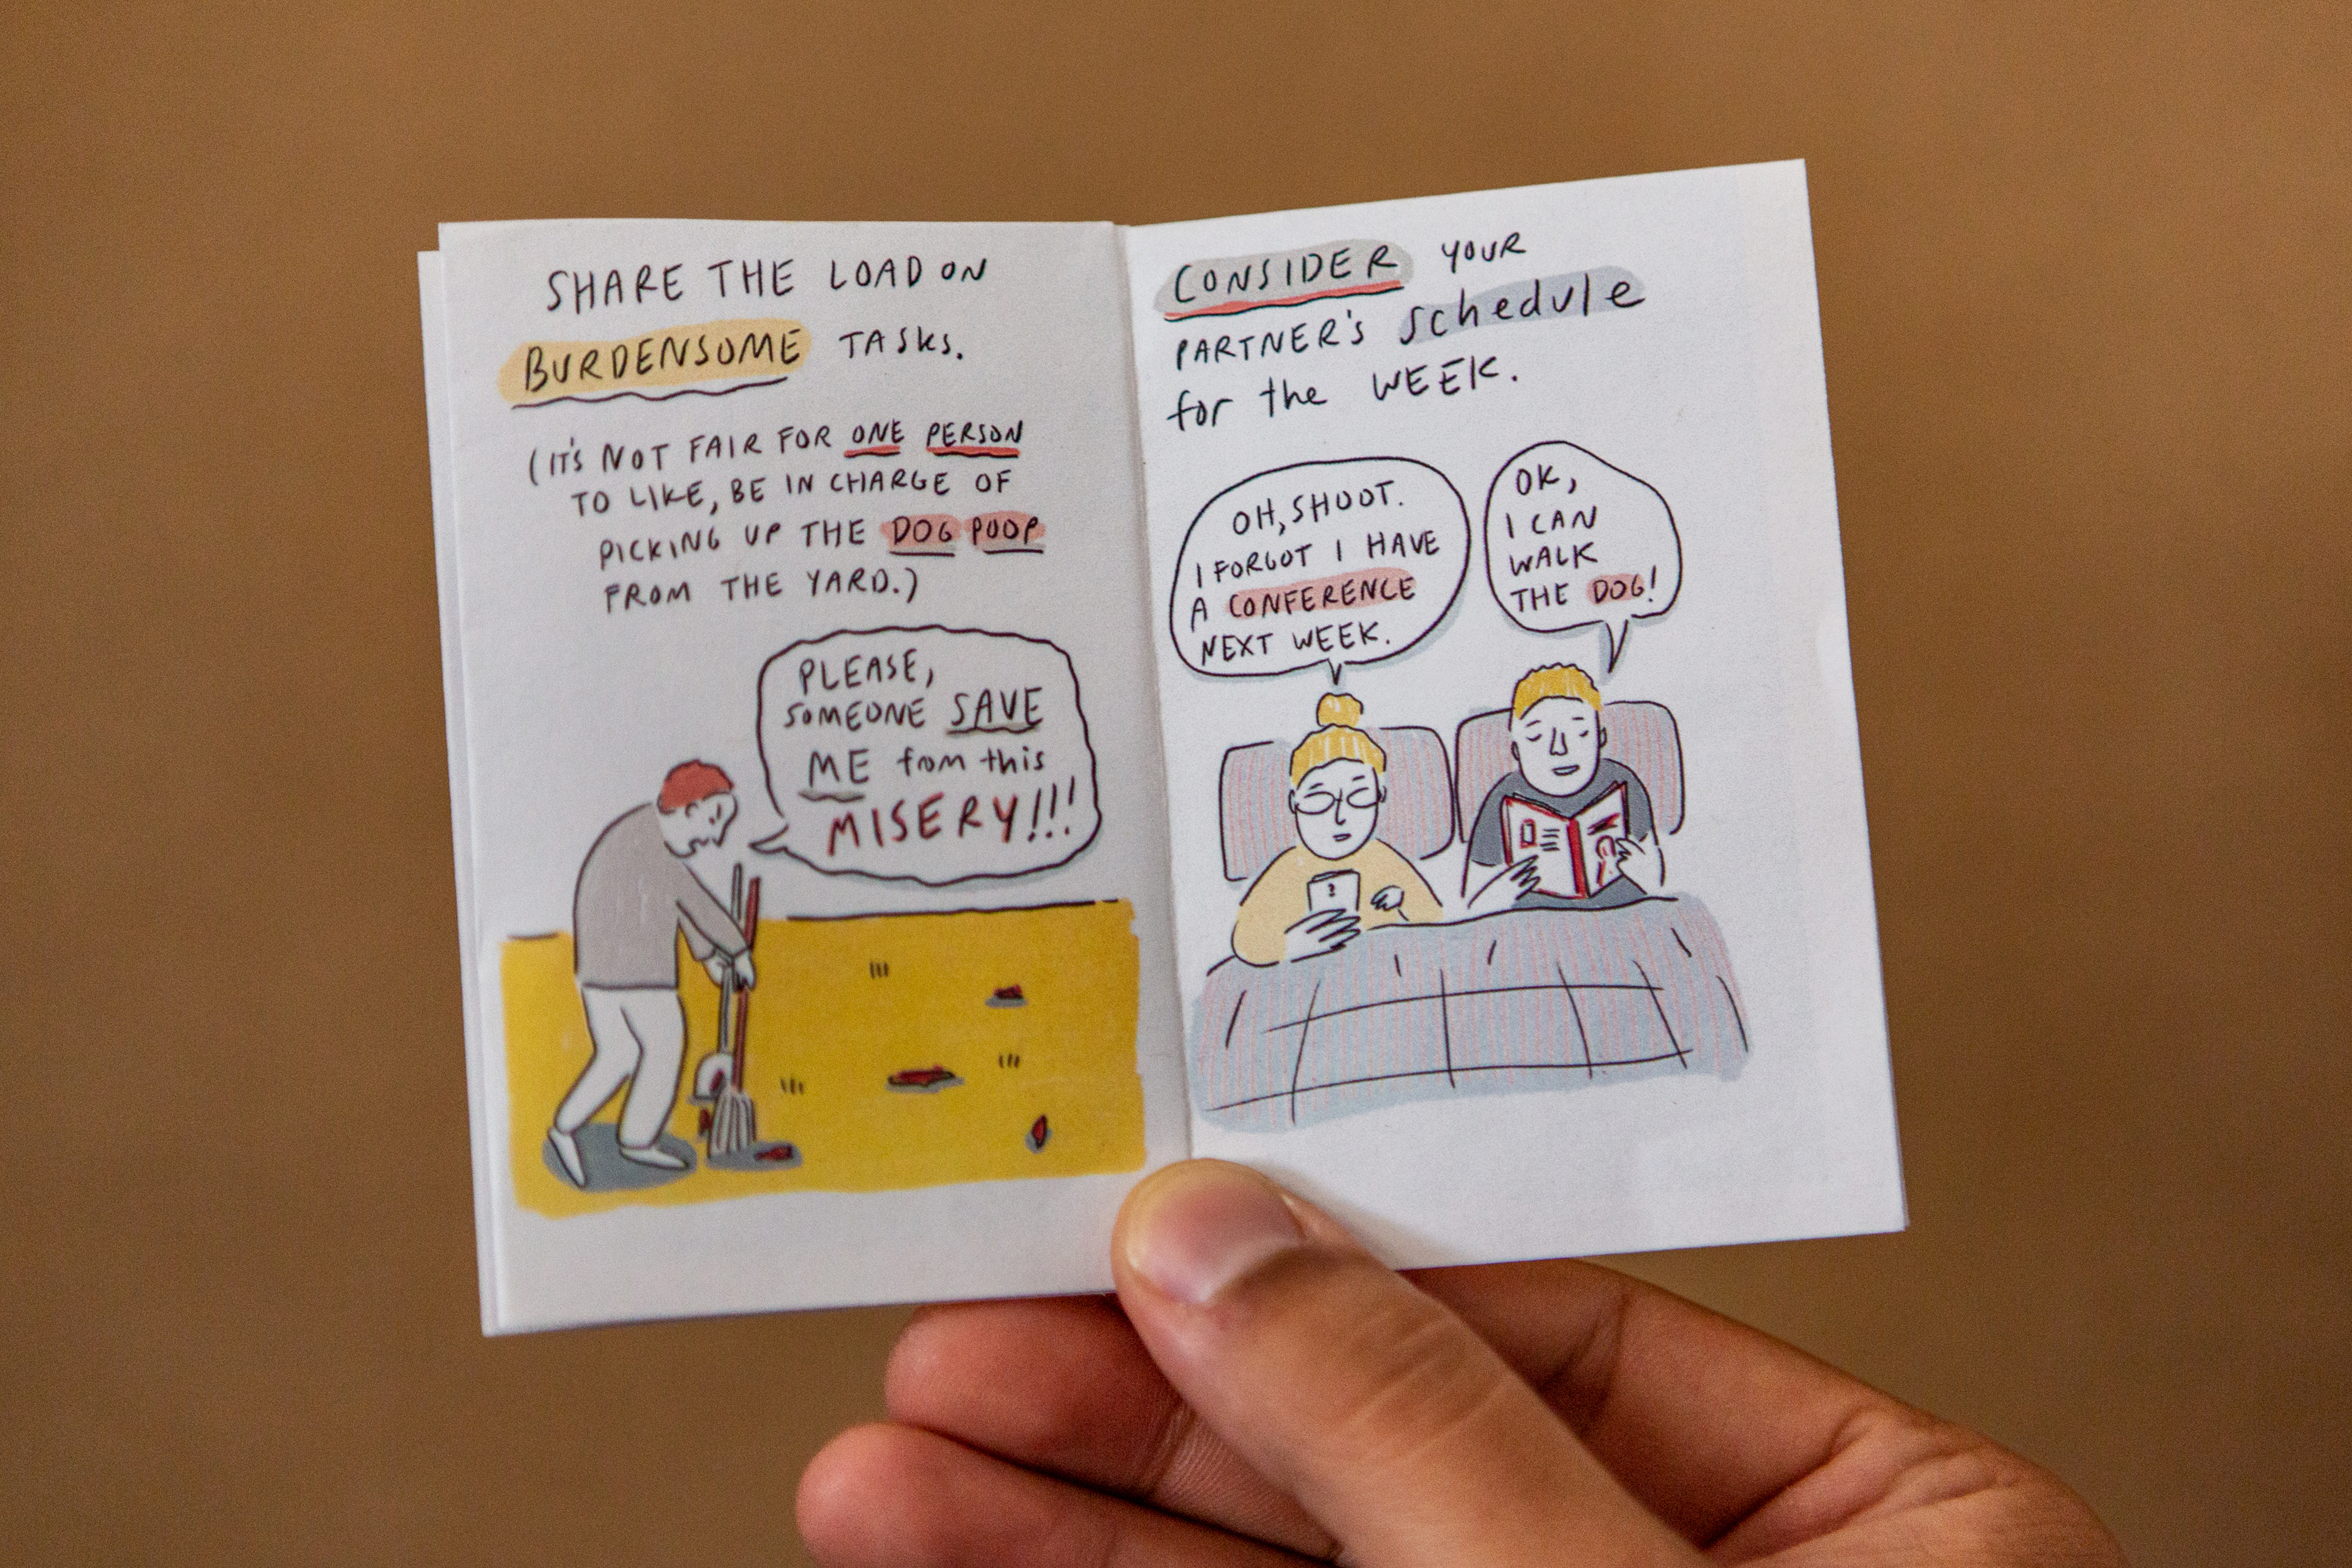 SHARE THE LOAD ON
BURDENSOME TASKS.
(IT'S NOT FAIR FOR ONE PERSON
TO LIKE, BE IN CHARGE OF
PICKING UP THE DOG POOP
FROM THE YARD.)
PLEASE,
SOMEONE SAVE
ME from this
MISERY!!!
CONSIDER YOUR
PARTNER'S schedule
for the WEEK.
OH, SHOOT.
I FORGOT I HAVE
A CONFERENCE
NEXT WEEK.
OK,
I CAN
WALK
THE DOG!